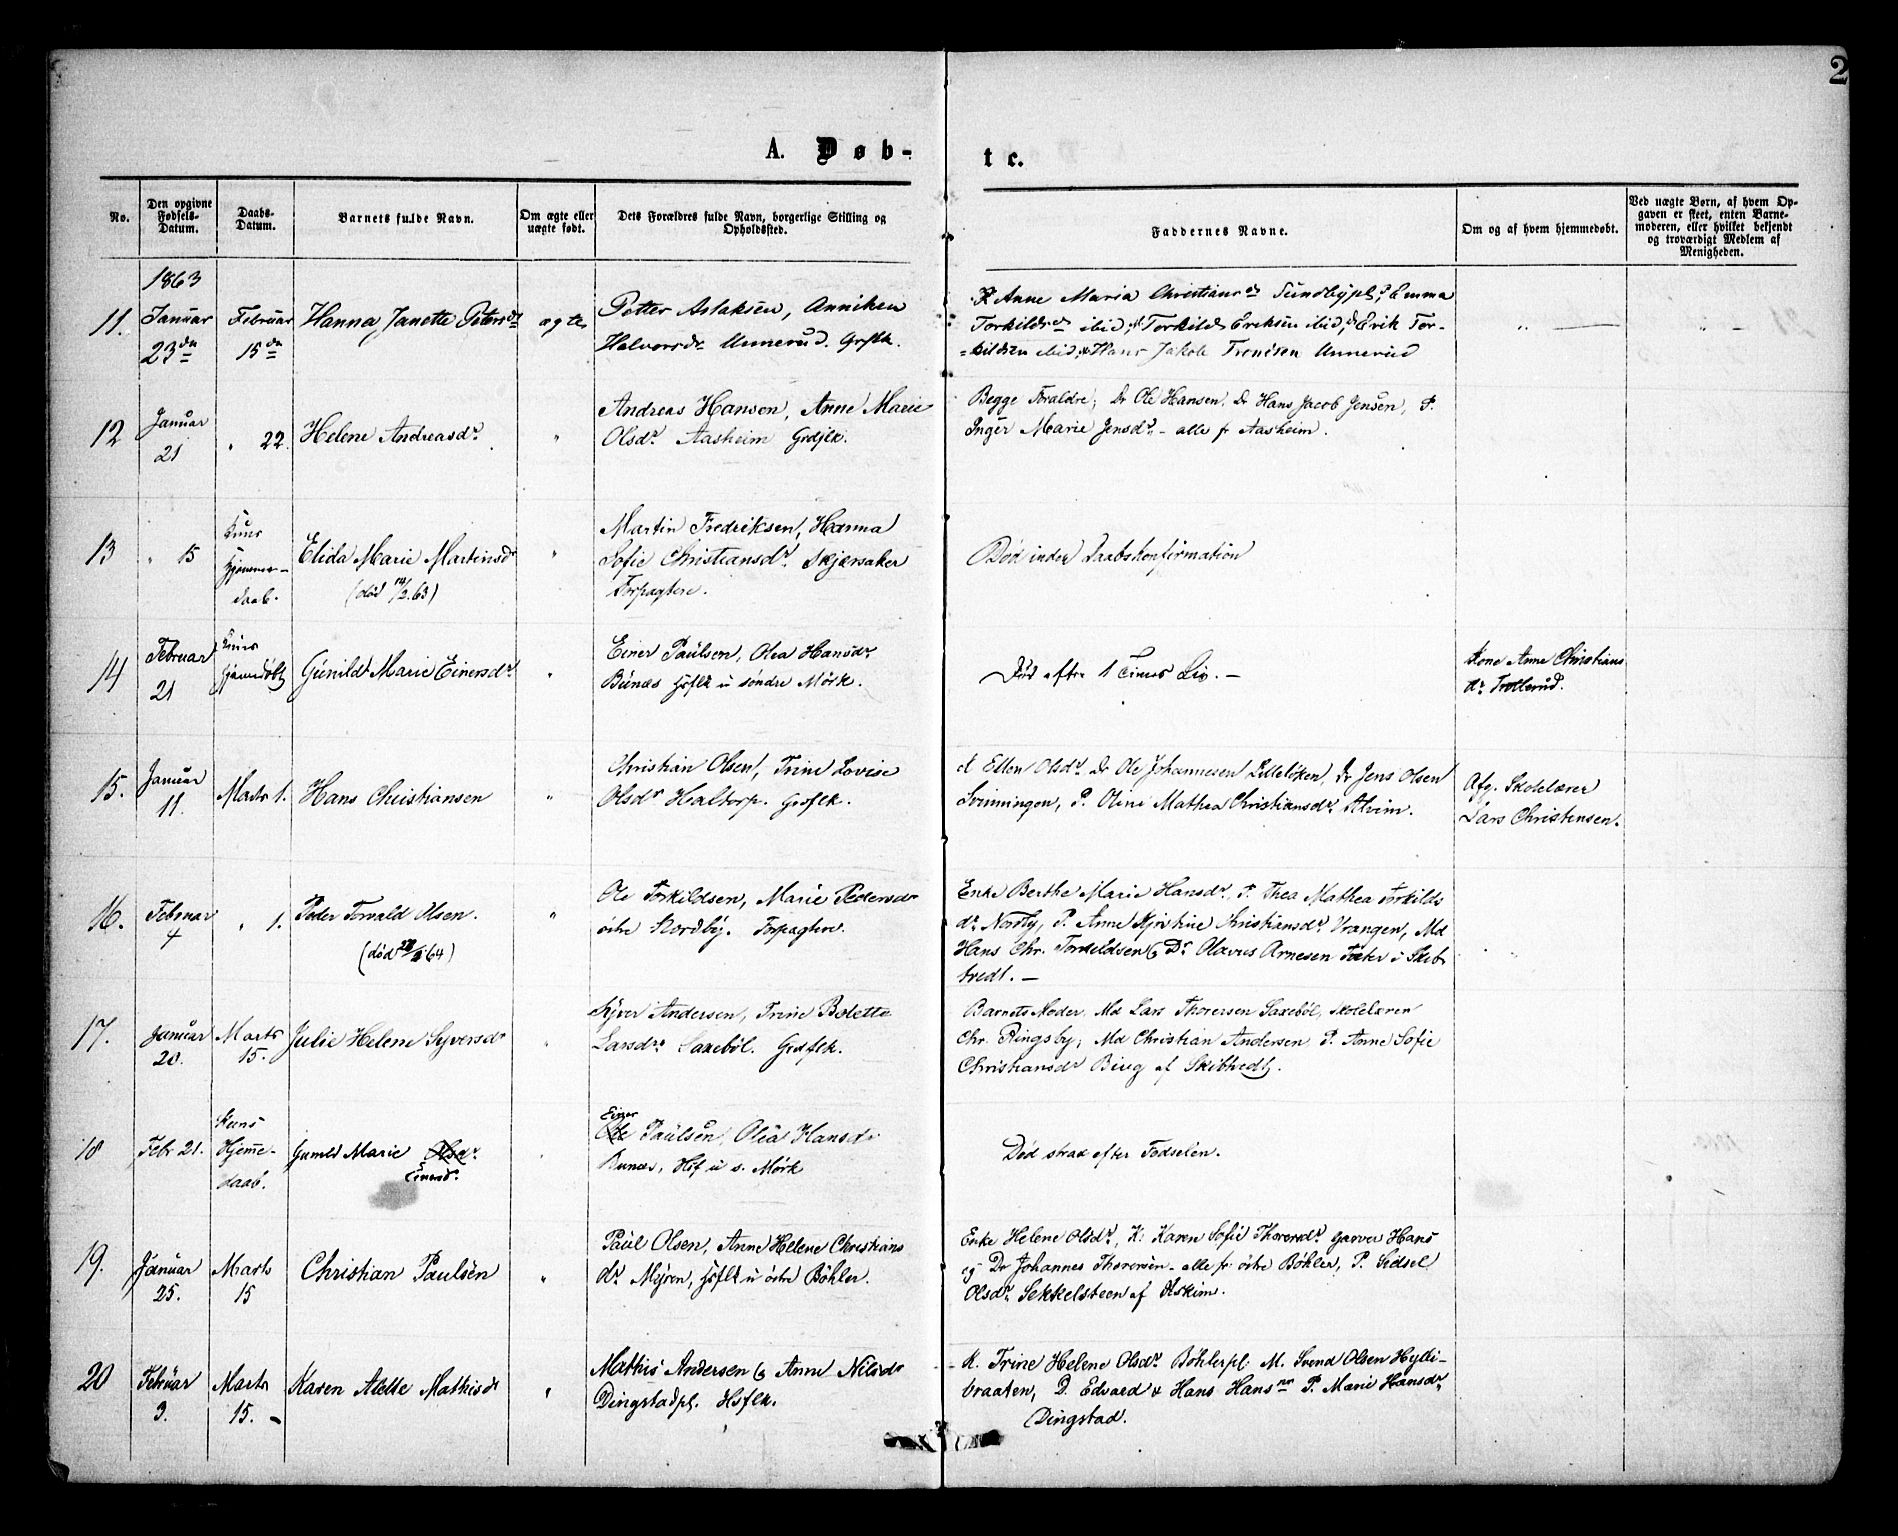 2
A. Døb-
te.
No.
Den opgivne Fødsels-Datum.
Daabs-Datum.
Barnets fulde Navn.
Om ægte eller uægte født.
Dets Forældres fulde Navn, borgerlige Stilling og Opholdssted.
Faddernes Navne.
Om og af hvem hjemmedøbt.
Ved uægte Børn, af hvem Opgaven er skeet, enten Barnemoderen, eller hvilket bekjendt og troværdigt Medlem af Menigheden.
1863
11. Januar 23de
Februar 15de
Hanna Janette Petersdr
ægte
Petter Aslaksen, Anniken
Halvorsdr Unnerud. Grflk.
K Anne Maria Christiansdr Sundbypl, P Emma
Torkildsdr ibid, Torkild Eriksen ibid, Erik Tor-
kildsen ibid, Hans Jakob Trondsen Unnerud
12 Januar 21
" 22.
Helene Andreasdr.
"
Andreas Hansen, Anne Marie
Olsdr. Aasheim Grdflk.
Begge Forældre, Dr Ole Hansen, Dr Hans Jacob Jensen, P.
Inger Marie Jensdr. - alle fr Aasheim.
13 " 15
Kuns
Hjemme-
daab.
Elida Marie Martinsdr
(død 10/2.63)
"
Martin Fredriksen, Hanna
Sofie Christiansdr. Skjærsaker
Forpagtere.
Død inden Daabskonfirmation
14 Februar 21
Kuns
hjemdøbt
Gunild Marie Einersdr.
"
Einer Paulsen, Olea Hansdr.
Bunæs Hsflk u søndre Mørk.
Død efter 1 Times Liv. -
Kone Anne Christians
dr. Trollerud.
15. Januar 11.
Marts 1.
Hans Christiansen
"
Christian Olsen, Trine Lovise
Olsdr Haltorp. Grdflk.
K Ellen Olsdr. Dr Ole Johannesen Lilleløken, Dr Jens Olsen
Svinningen, P. Oline Mathea Christiansdr. Alvim.
Afg. Skolelærer
Lars Christensen.
16. Februar 4
" 1.
Peder Torvald Olsen.
(død 64)
"
Ole Torkildsen, Marie Pedersdr
østre Nordby. Forpagtere.
Enke Berthe Marie Hansdr, P. Thea Mathea Torkilds
dr. Nordby, P. Anne Kjristine Christiansdr. Vrangen, Md
Hans Chr. Torkildsen & Dr Olaves Arnesen i Skib
tvedt. -
17. Januar 20.
Marts 15.
Julie Helene Syversdr
"
Syver Andersen, Trine Bolette
Larsdr. Saxebøl. Grdflk.
Barnets Moder, Md Lars Thoresen Saxebøl, Skolelærer
Chr. Ringsby, Md Christian Andersen P. Anne Sofie
Christiansdr af Skibtvedt.
18 Febr 21.
Kuns
Hjemme-
daab.
Gunild Marie Olsdr.
Einersd.
Einer
Ole Paulsen, Olea Hansdr
Bunæs, Hsf u s. Mørk
Død strax efter Fødselen.
19. Januar 25.
Marts 15
Christian Paulsen
"
Paul Olsen, Anne Helene Christians
dr. Myren, Hsflk u østre Bøhler.
Enke Helene Olsdr, K. Karen Sofie Thoresdr. garver Hans
og Dr Johannes Thoresen - alle fr østre Bøhler, P. Sidsel
Olsdr. Sekkelsteen af Askim.
20 Februar 3.
Marts 15. -
Karen Alette Mathisdr
"
Mathis Andersen & Anne Nilsdr
Dingstadpl. Hsflk.
K. Trine Helene Olsdr. Bøhlerpl. M. Svend Olsen Hylli-
braaten, D. Edvard & Hans Hansnr P. Marie Hansdr.
Dingstad.